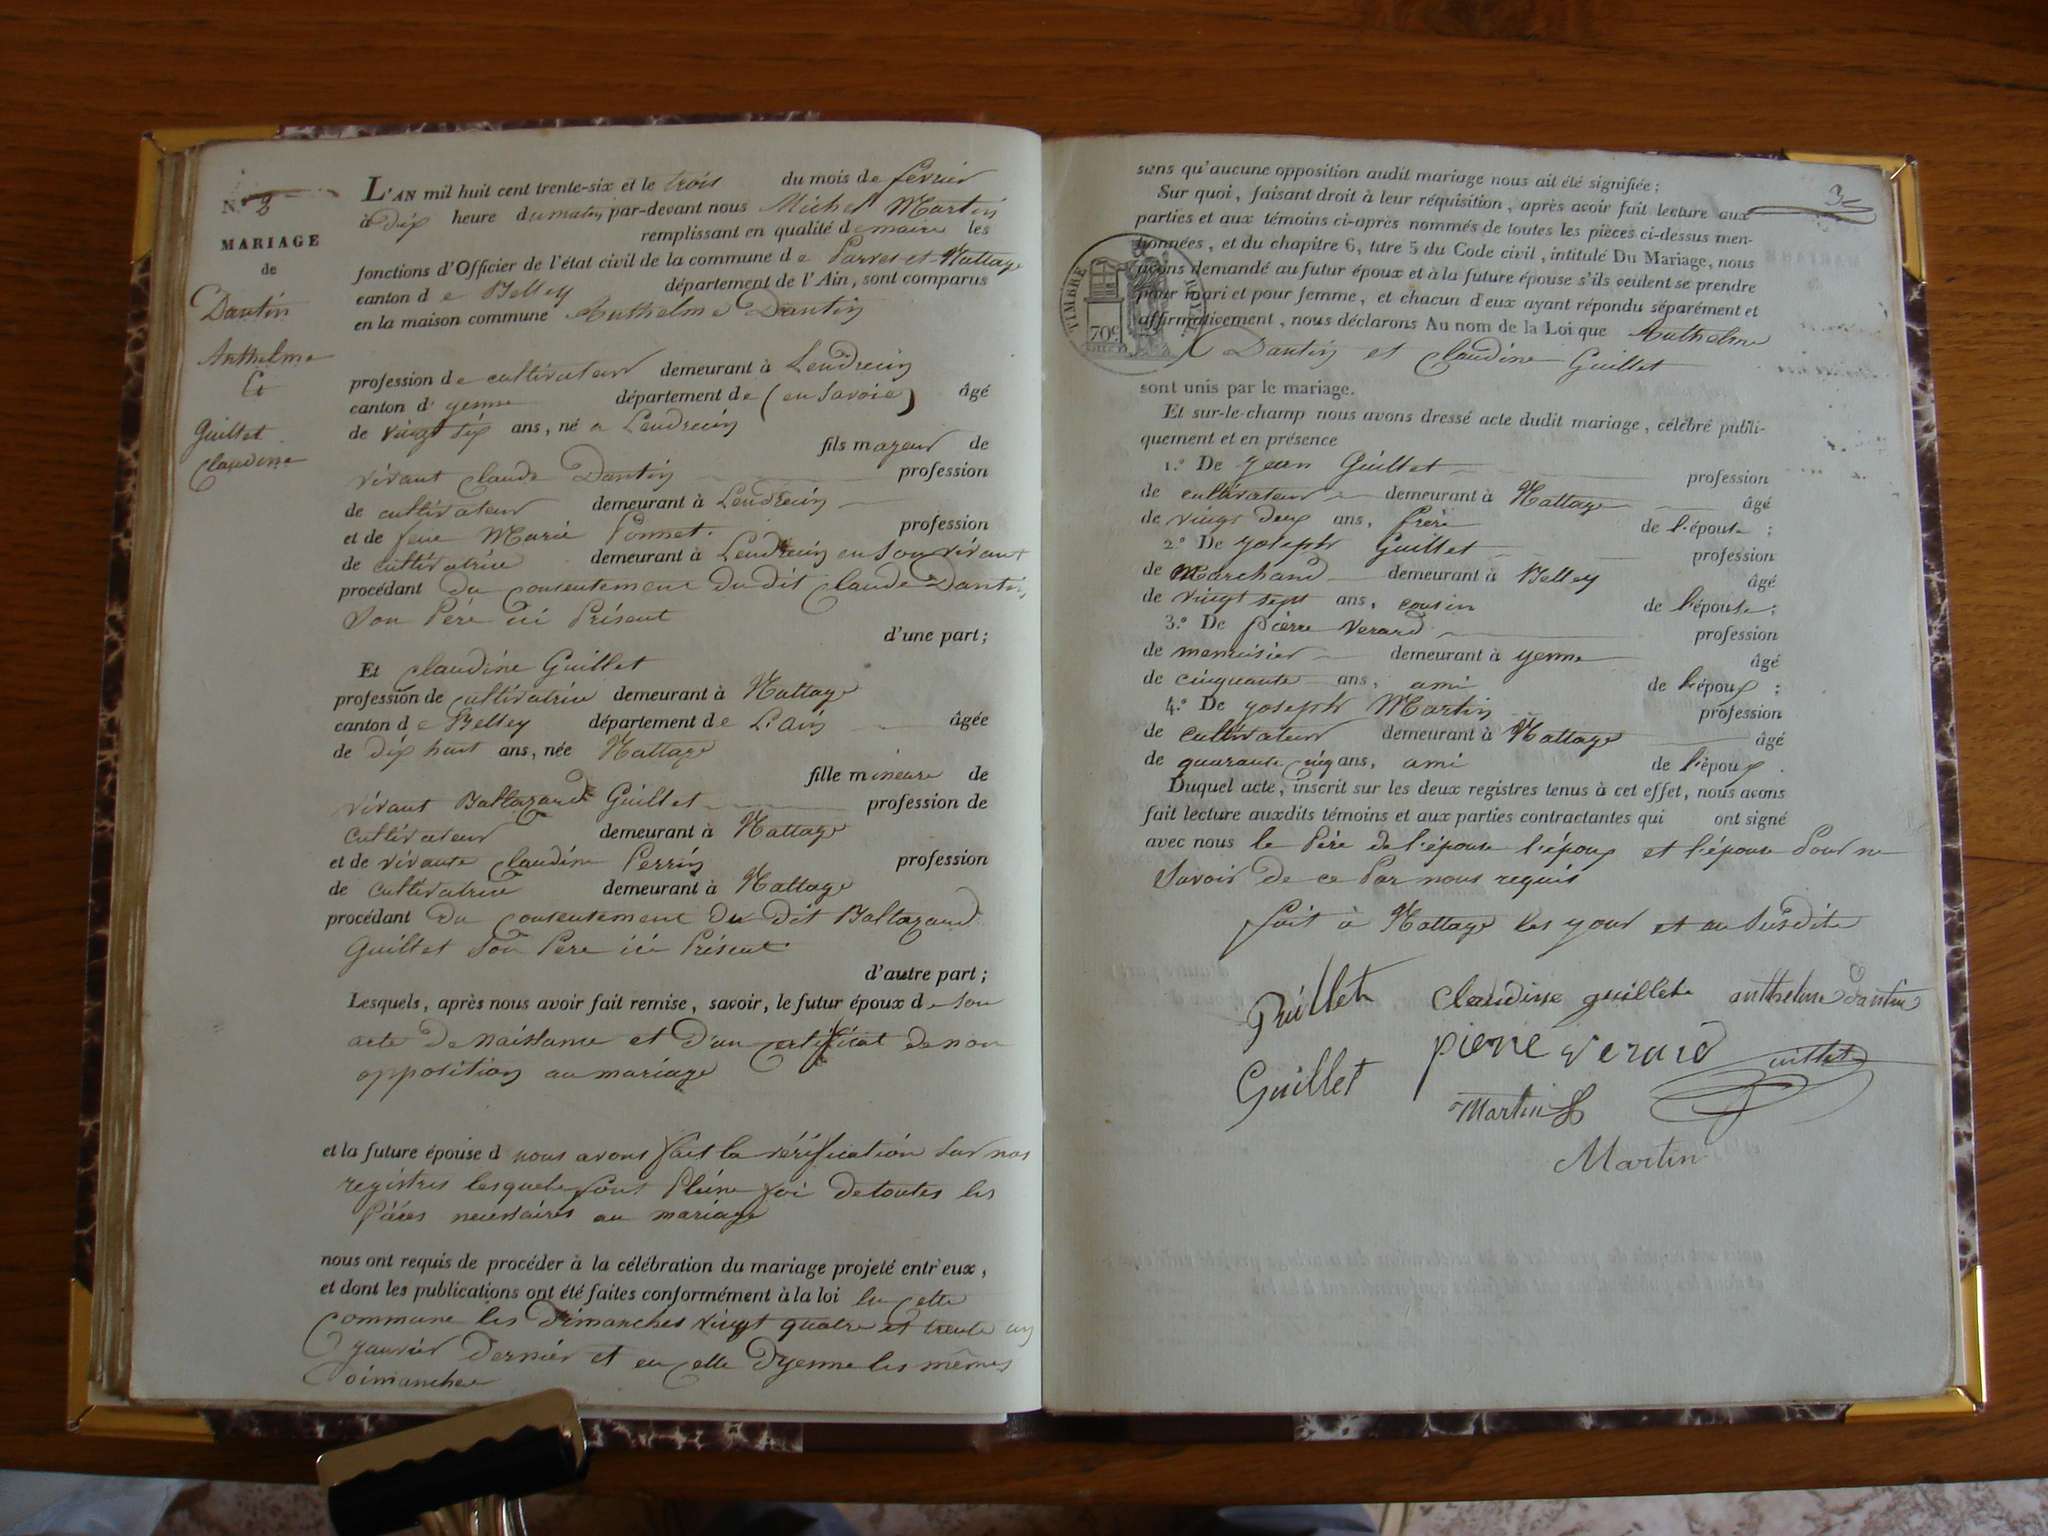 N.º 3
MARIAGE
de
Dantin
Anthelme
Et
Guillet
Claudine
L'AN mil huit cent trente-six et le trois du mois de février
à dix heure du matin par-devant nous Michel Martin
remplissant en qualité de maire les
fonctions d'Officier de l'état civil de la commune de Parves et Nattage
canton de Belley département de l'Ain, sont comparus
en la maison commune Anthelme Dantin
profession de cultivateur demeurant à Lendrecin
canton d' yenne département de (en Savoie) âgé
de vingt six ans, né a Lendrecin
fils mageur de
vivant Claude Dantin profession
de cultivateur demeurant à Lendrecin
et de feue Marie Ponnet. profession
de cultivatrice demeurant à Lendrecin en son vivant
procédant du consentement du dit Claude Dantin
Son Père ici Présent
d'une part;
Et Claudine Guillet
profession de cultivatrice demeurant à Nattage
canton de Belley département de L'ain âgée
de dix huit ans, née Nattage
fille mineure de
vivant Baltazard Guillet profession de
cultivateur demeurant à Nattage
et de vivante Claudine Perrin profession
de cultivatrice demeurant à Nattage
procédant du consentement du dit Baltazard
Guillet Son Père ici Présent
d'autre part;
Lesquels, après nous avoir fait remise, savoir, le futur époux de son
acte de naissance et d'un certificat de non
opposition au mariage
et la future épouse d nous avons fait la vérification sur nos
registres lesquels font Pleine foi de toutes les
Pièces necessaires au mariage
nous ont requis de procéder à la célébration du mariage projeté entr'eux,
et dont les publications ont été faites conformément à la loi en cette
commune les dimanches vingt quatre et trente un
ganvier dernier et en celle d'yenne les mêmes
Dimanches
3
sens qu'aucune opposition audit mariage nous ait été signifiée;
Sur quoi, faisant droit à leur réquisition, après avoir fait lecture aux
parties et aux témoins ci-après nommés de toutes les pièces ci-dessus men-
tionnées, et du chapitre 6, titre 5 du Code civil, intitulé Du Mariage, nous
avons demandé au futur époux et à la future épouse s'ils veulent se prendre
pour mari et pour femme, et chacun d'eux ayant répondu séparément et
affirmativement, nous déclarons Au nom de la Loi que Anthelme
Dantin et Claudine Guillet
TIMBRE
70c
sont unis par le mariage.
Et sur-le-champ nous avons dressé acte dudit mariage, célébré publi-
quement et en présence
1.º De Jean Guillet profession
de cultivateur demeurant à Nattage âgé
de vingt deux ans, frère de l'épouse;
2.º De Joseph Guillet profession
de Marchand demeurant à Belley âgé
de vingt sept ans, cousin de l'épouse;
3.º De pierre Verard profession
de menuisier demeurant à yenne âgé
de cinquante ans, ami de l'époux;
4.º De Joseph Martin profession
de cultivateur demeurant à Nattage âgé
de quarante cinq ans, ami de l'époux.
Duquel acte, inscrit sur les deux registres tenus à cet effet, nous avons
fait lecture auxdits témoins et aux parties contractantes qui ont signé
avec nous le Père de l'épouse l'époux et l'épouse
Savoir de ce Par nous requis
fait à Nattage les jour et an Susdits
Guillet Claudine guillet anthelme Dantin
pierre verard Guillet
Guillet
Martin
Martin